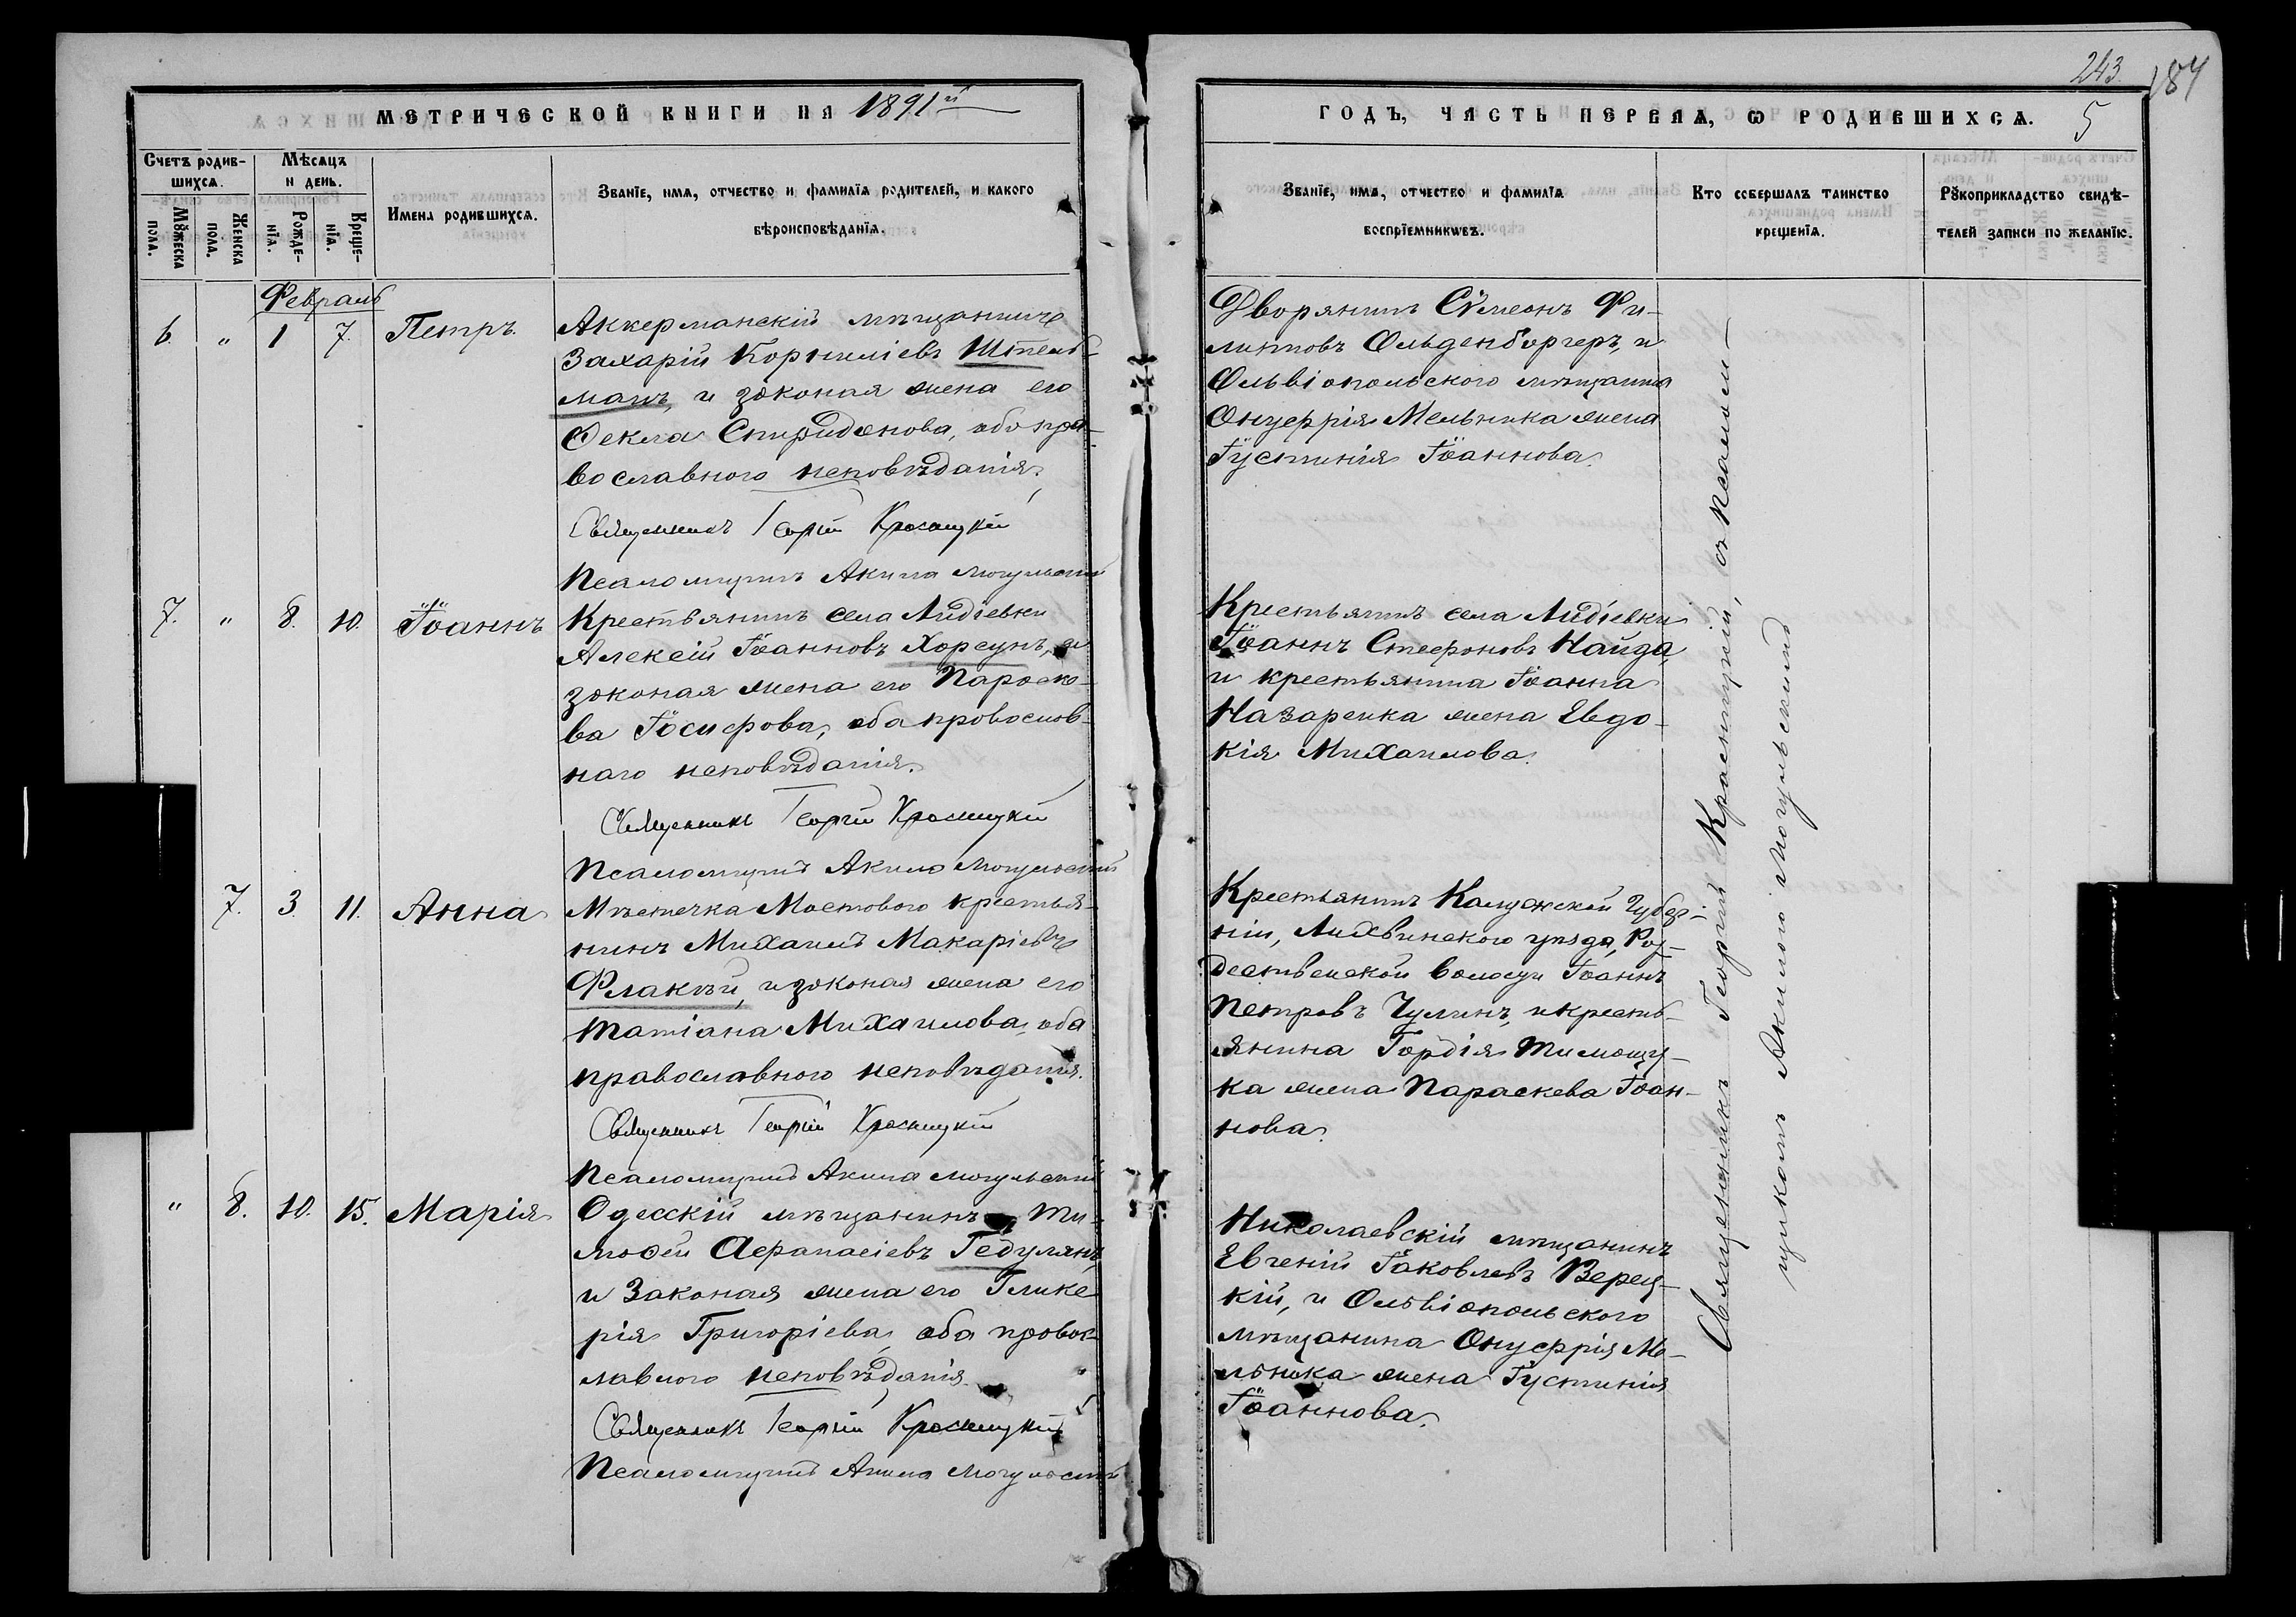 243. 184
МЕТРИЧЕСКОЙ КНИГИ НА 1891й
ГОДЪ, ЧАСТЬ ПЕРВАЯ, Ѡ РОДИВШИХСѦ. 5
Счетъ родив-
шихсѧ.
Мѣсѧцъ
и день.
Мꙋжеска
пола.
Женска
пола.
Рожде-
нїѧ.
Креще-
нїѧ.
Имена родившихсѧ.
Званїе, имѧ, отчество и фамилїѧ родителей, и какого
вѣроисповѣданїѧ.
Званїе, имѧ, отчество и фамилїѧ
воспрїемникѡвъ.
Кто совершалъ таинство
крещенїѧ.
Рꙋкоприкладство свидѣ-
телей записи по желанїю.
Февраль
6. " 1 7. Петръ.
Аккерманскій мѣщанинъ
Захарій Корниліевъ Штель-
махъ, и законая жена его
Ѳекла Спиридонова, обо пра-
вославного исповѣданія.
Священникъ Георгій Красицкій
Псаломщикъ Акила Могульскій
Дворянинъ Сѷмеонъ Фи-
липповъ Ольденборгеръ, и
Ольвіопольского мѣщанина
Онуфрія Мельника жена
Іустинія Іоаннова.
7. " 8. 10. Іоаннъ
Крестьянинъ села Лидіевки
Алексій Іоанновъ Хорсунъ, и
законая жена его Параске-
ва Іосифова, оба провослов-
наго исповѣданія.
Священникъ Георгій Красицкій
Псаломщикъ Акила Могульскій
Крестьянинъ села Лидіевки
Іоаннъ Стефоновъ Найда,
и крестьянина Іоанна
Назаренка жена Евдо-
кія Михаилова.
7. 3. 11. Анна
Мѣстечка Мостового крестья-
нинъ Михаилъ Макаріевъ
Флакѣй, и законая жена его
Татіана Михаилова, оба
православного исповѣданія.
Священникъ Георгій Красицкій
Псаломщикъ Акила Могульскій
Крестьянинъ Калужской Губер-
ніи, Лихвинского уѣзда,
волости Іоаннъ
Петровъ Чулинъ, и кресть-
янина Гордія Тимощу-
ка жена Параскева Іоан-
нова.
" 8. 10. 15. Марія
Одесскій мѣщанинъ Ти-
моѳей Афанасіевъ Гедулянъ,
и Законая жена его Глике
рія Григоріева, оба провос-
лавного исповѣданія.
Священникъ Георгій Красицкій
Псаломщикъ Акила Могульскій
Николаевскій мѣщанинъ
Евгеній Іаковлевъ Верец-
кій, и Ольвіопольского
мѣщанина Онуфрія Ме-
льника жена Іустинія
Іоаннова.
Священникъ Георгій Красицкій, съ псалом-
щикомъ Акилою Могульскимъ